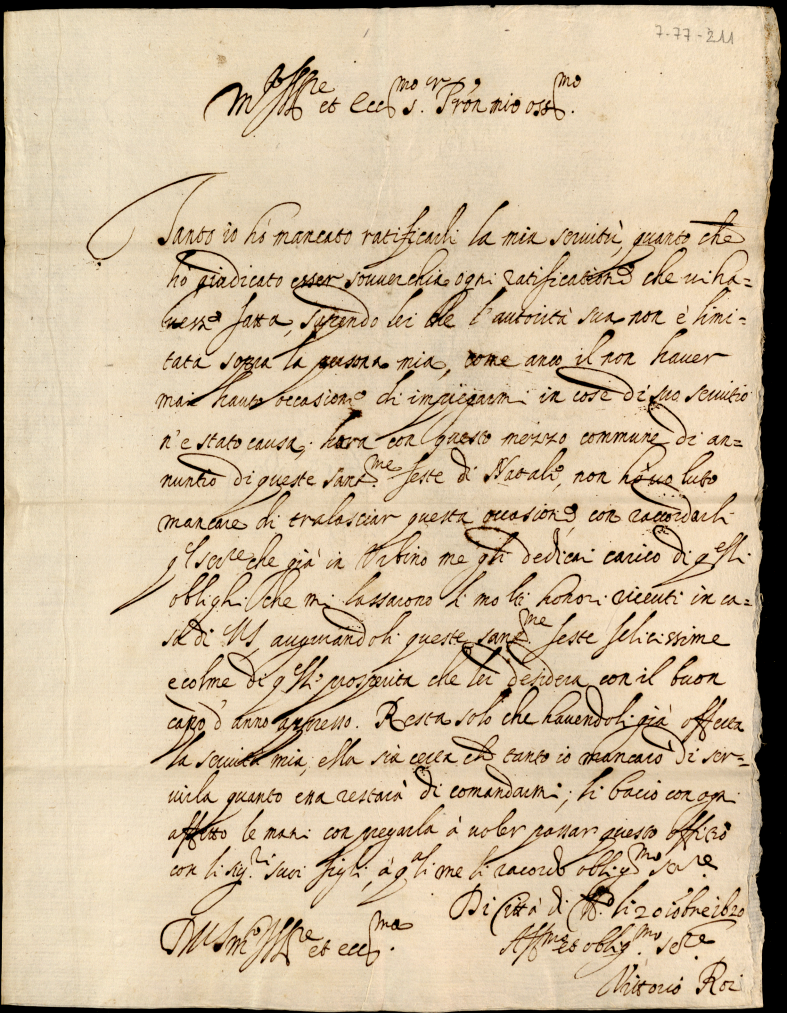 7-77-211
Ill.re et ecc.mo s.r Pron mio oss.mo
Tanto io hò mancato ratificarli la mia servitù, quanto che
hò giudicato esser souuerchia ogni ratificatione che ui ha=
uessi fatta, sapendo lei che l'autorità sua non è limi=
tata sopra la persona mia, come anco il non hauer
mai hauto occasione di impiegarmi in cose di suo seruitio
n'è stato causa; hora con questo mezzo commune di an=
nuntio di queste sant.me feste di Natale, non hò uoluto
mancare di tralasciar questa occasione, con raccordarli
q.l ser.re che già in Urbino me gli dedicai carico di q.lli
oblighi che mi lassarono li molti honori riceuti in ca=
sa di VS, augurandoli queste sant.me feste felicissime
e colme di q.lle prosperita che lei desidera con il buon
capo d'anno appresso. Resta solo che hauendoli già offerta
la seruitù mia, ella sia certa che tanto io mancarò di ser=
uirla quanto ella restarà di comandarmi; li bacio con ogni
affetto le mani con pregarla à uoler passar questo offitio
con li sig.ri suoi figli, à q.ali me li racordo oblig.mo ser.re
Di Città di li 20
Di VS Ill.re et ecc.ma
Aff.mo et oblig.mo se.re
Vittorio Roi